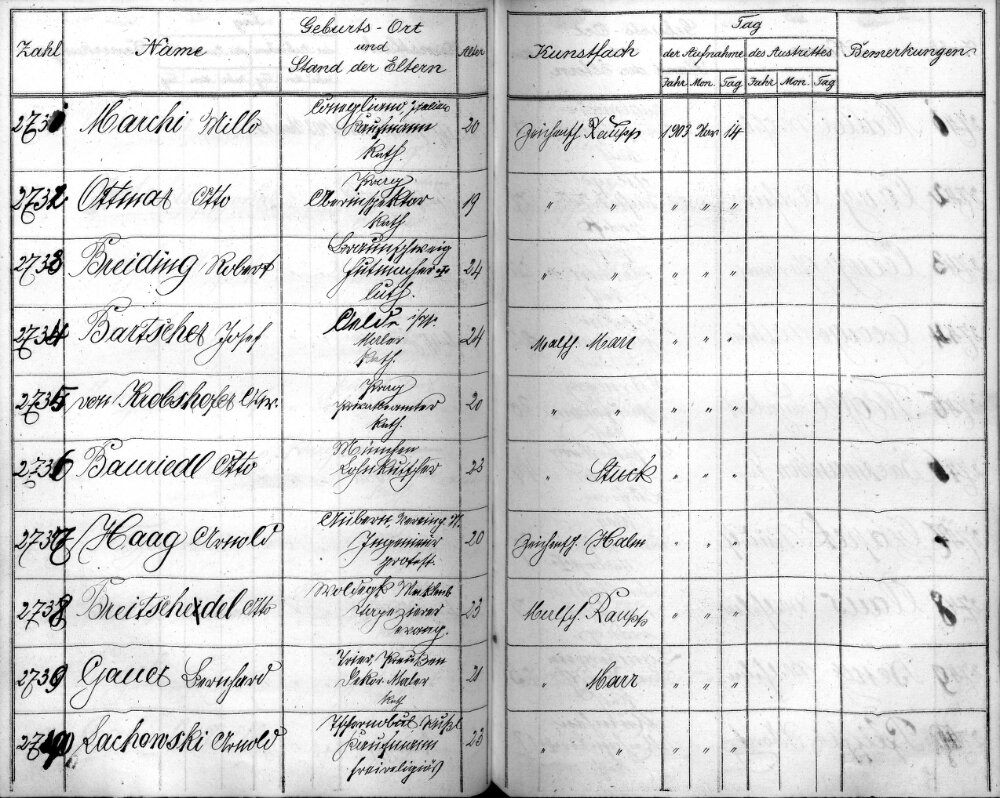 Zahl Name Geburts-Ort und Stand der Eltern Alter Kunstfach Tag der Aufnahme des Austrittes Bemerkungen
Jahr Mon. Tag Jahr Mon. Tag
2731 Marchi Millo Conegliano, Italien 20 Zeichensch. Raupp 1903 Nov 14
Kaufmann
Kath.
2732 Ottmar Otto Prag 19 " " " " "
Oberinspektor
Kath
2733 Breiding Robert Braunschweig 24 " " " " "
Hutmacher
luth.
2734 Bartscher Josef Oelde 24 Malsch. Marr " " "
Maler
Kath.
2735 von Krobshofer Prag 20 " " " " "
Kath.
2736 Bauriedl Otto München 23 " Stuck " " "
Lohnkutscher
2737 Haag Arnold 20 Zeichensch. Halm " " "
Ingenieur
protest.
2738 Breitscheidel Otto Woldegk Mecklenb 23 Malsch. Raupp " " "
Tapezierer
evang.
2739 Gauer Bernhard Trier, Preußen 21 " Marr " " "
Dekor. Maler
Kath
2740 Lachowski Arnold 23 " " " " "
Kaufmann
freireligiös